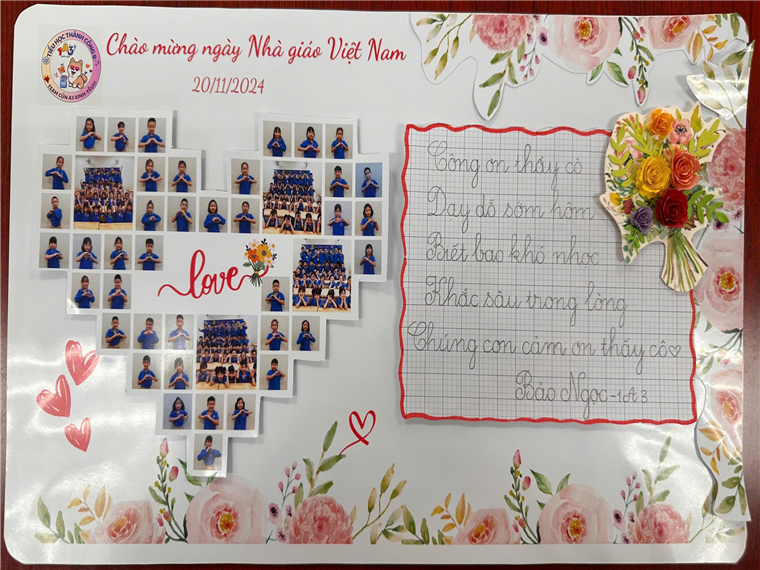 TIỂU HỌC THÀNH CÔNG B
Chào mừng ngày Nhà giáo Việt Nam
20/11/2024
love
Công ơn thầy cô
Dạy dỗ sớm hôm
Biết bao khó nhọc
Khắc sâu trong lòng
Chúng con cảm ơn thầy cô
Bảo Ngọc - 1A3